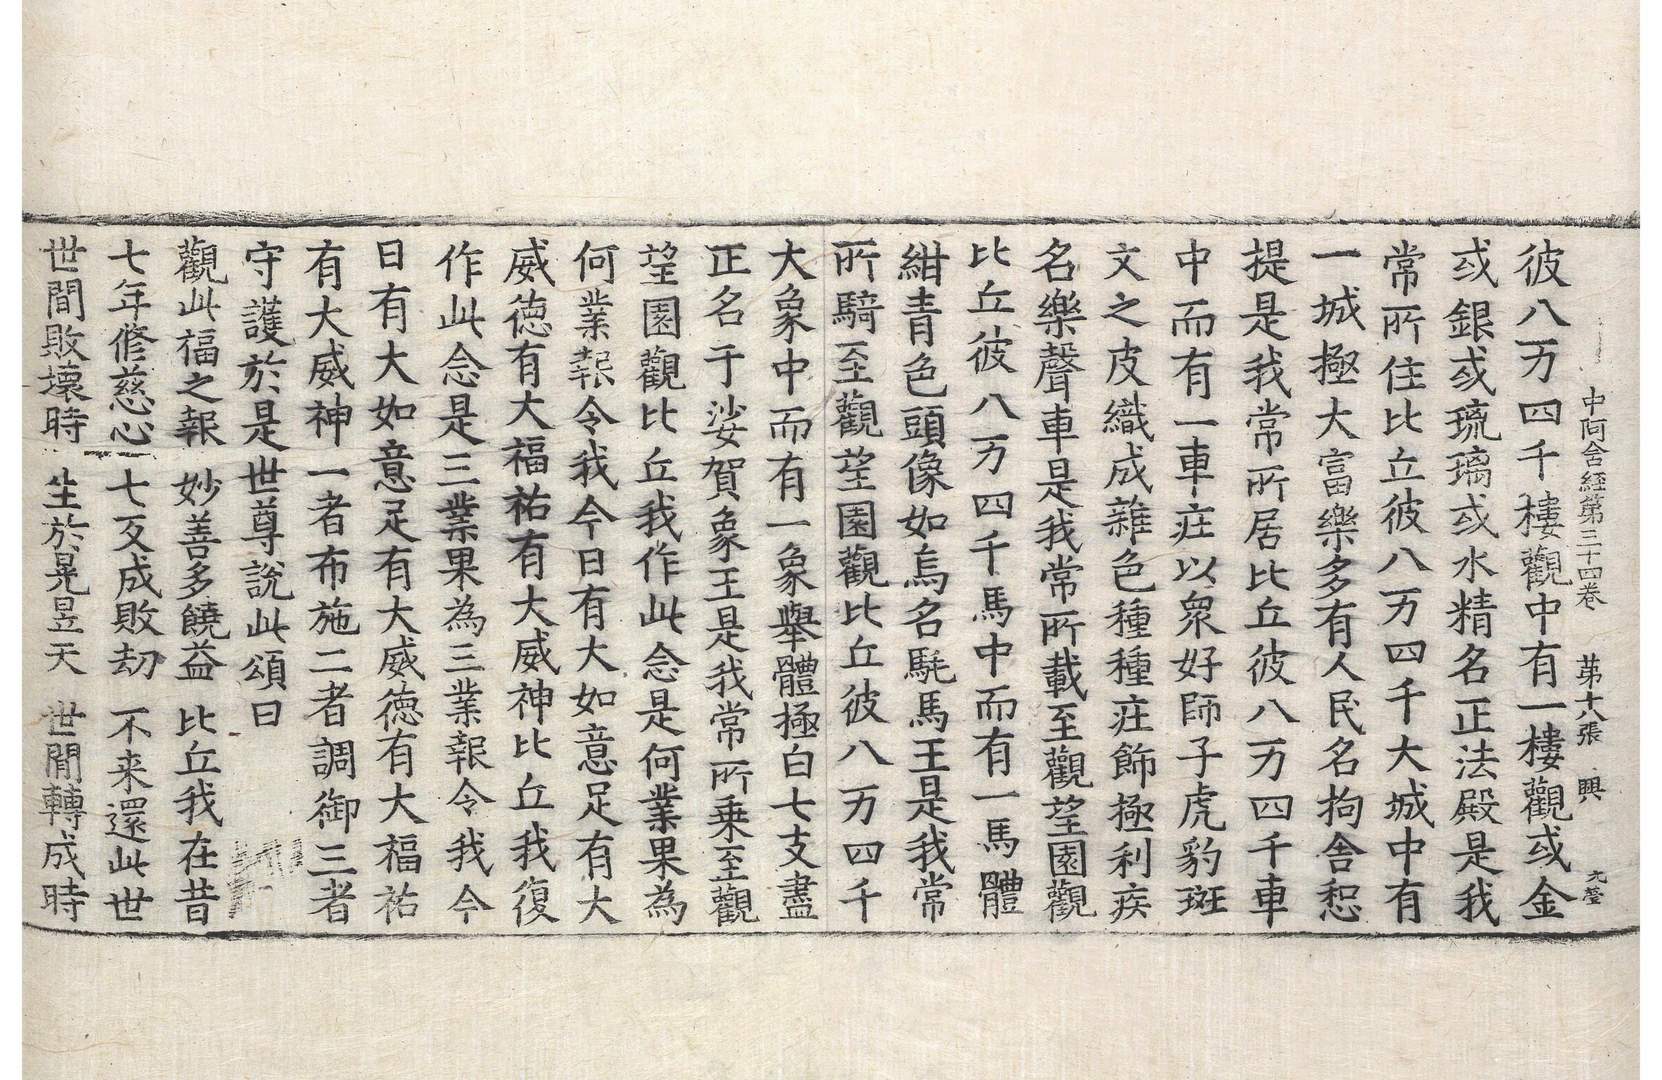 中阿含經第三十四卷 第十八張 興
彼八万四千樓觀中有一樓觀或金
或銀或琉璃或水精名正法殿是我
常所住比丘彼八万四千大城中有
一城極大富樂多有人民名拘舍惒
提是我常所居比丘彼八万四千車
中而有一車庄以衆好師子虎豹斑
文之皮織成雜色種種庄飾極利疾
名樂聲車是我常所載至觀望園觀
比丘彼八万四千馬中而有一馬體
紺青色頭像如烏名髦馬王是我常
所騎至觀望園觀比丘彼八万四千
大象中而有一象舉體極白七支盡
正名于娑賀象王是我常所乘至觀
望園觀比丘我作此念是何業果為
何業報令我今日有大如意足有大
威德有大福祐有大威神比丘我復
作此念是三業果為三業報令我今
日有大如意足有大威德有大福祐
有大威神一者布施二者調御三者
守護於是世尊說此頌曰
觀此福之報 妙善多饒益 比丘我在昔
七年修慈心 七反成敗劫 不来還此世
世間敗壞時 生於晃昱天 世間轉成時